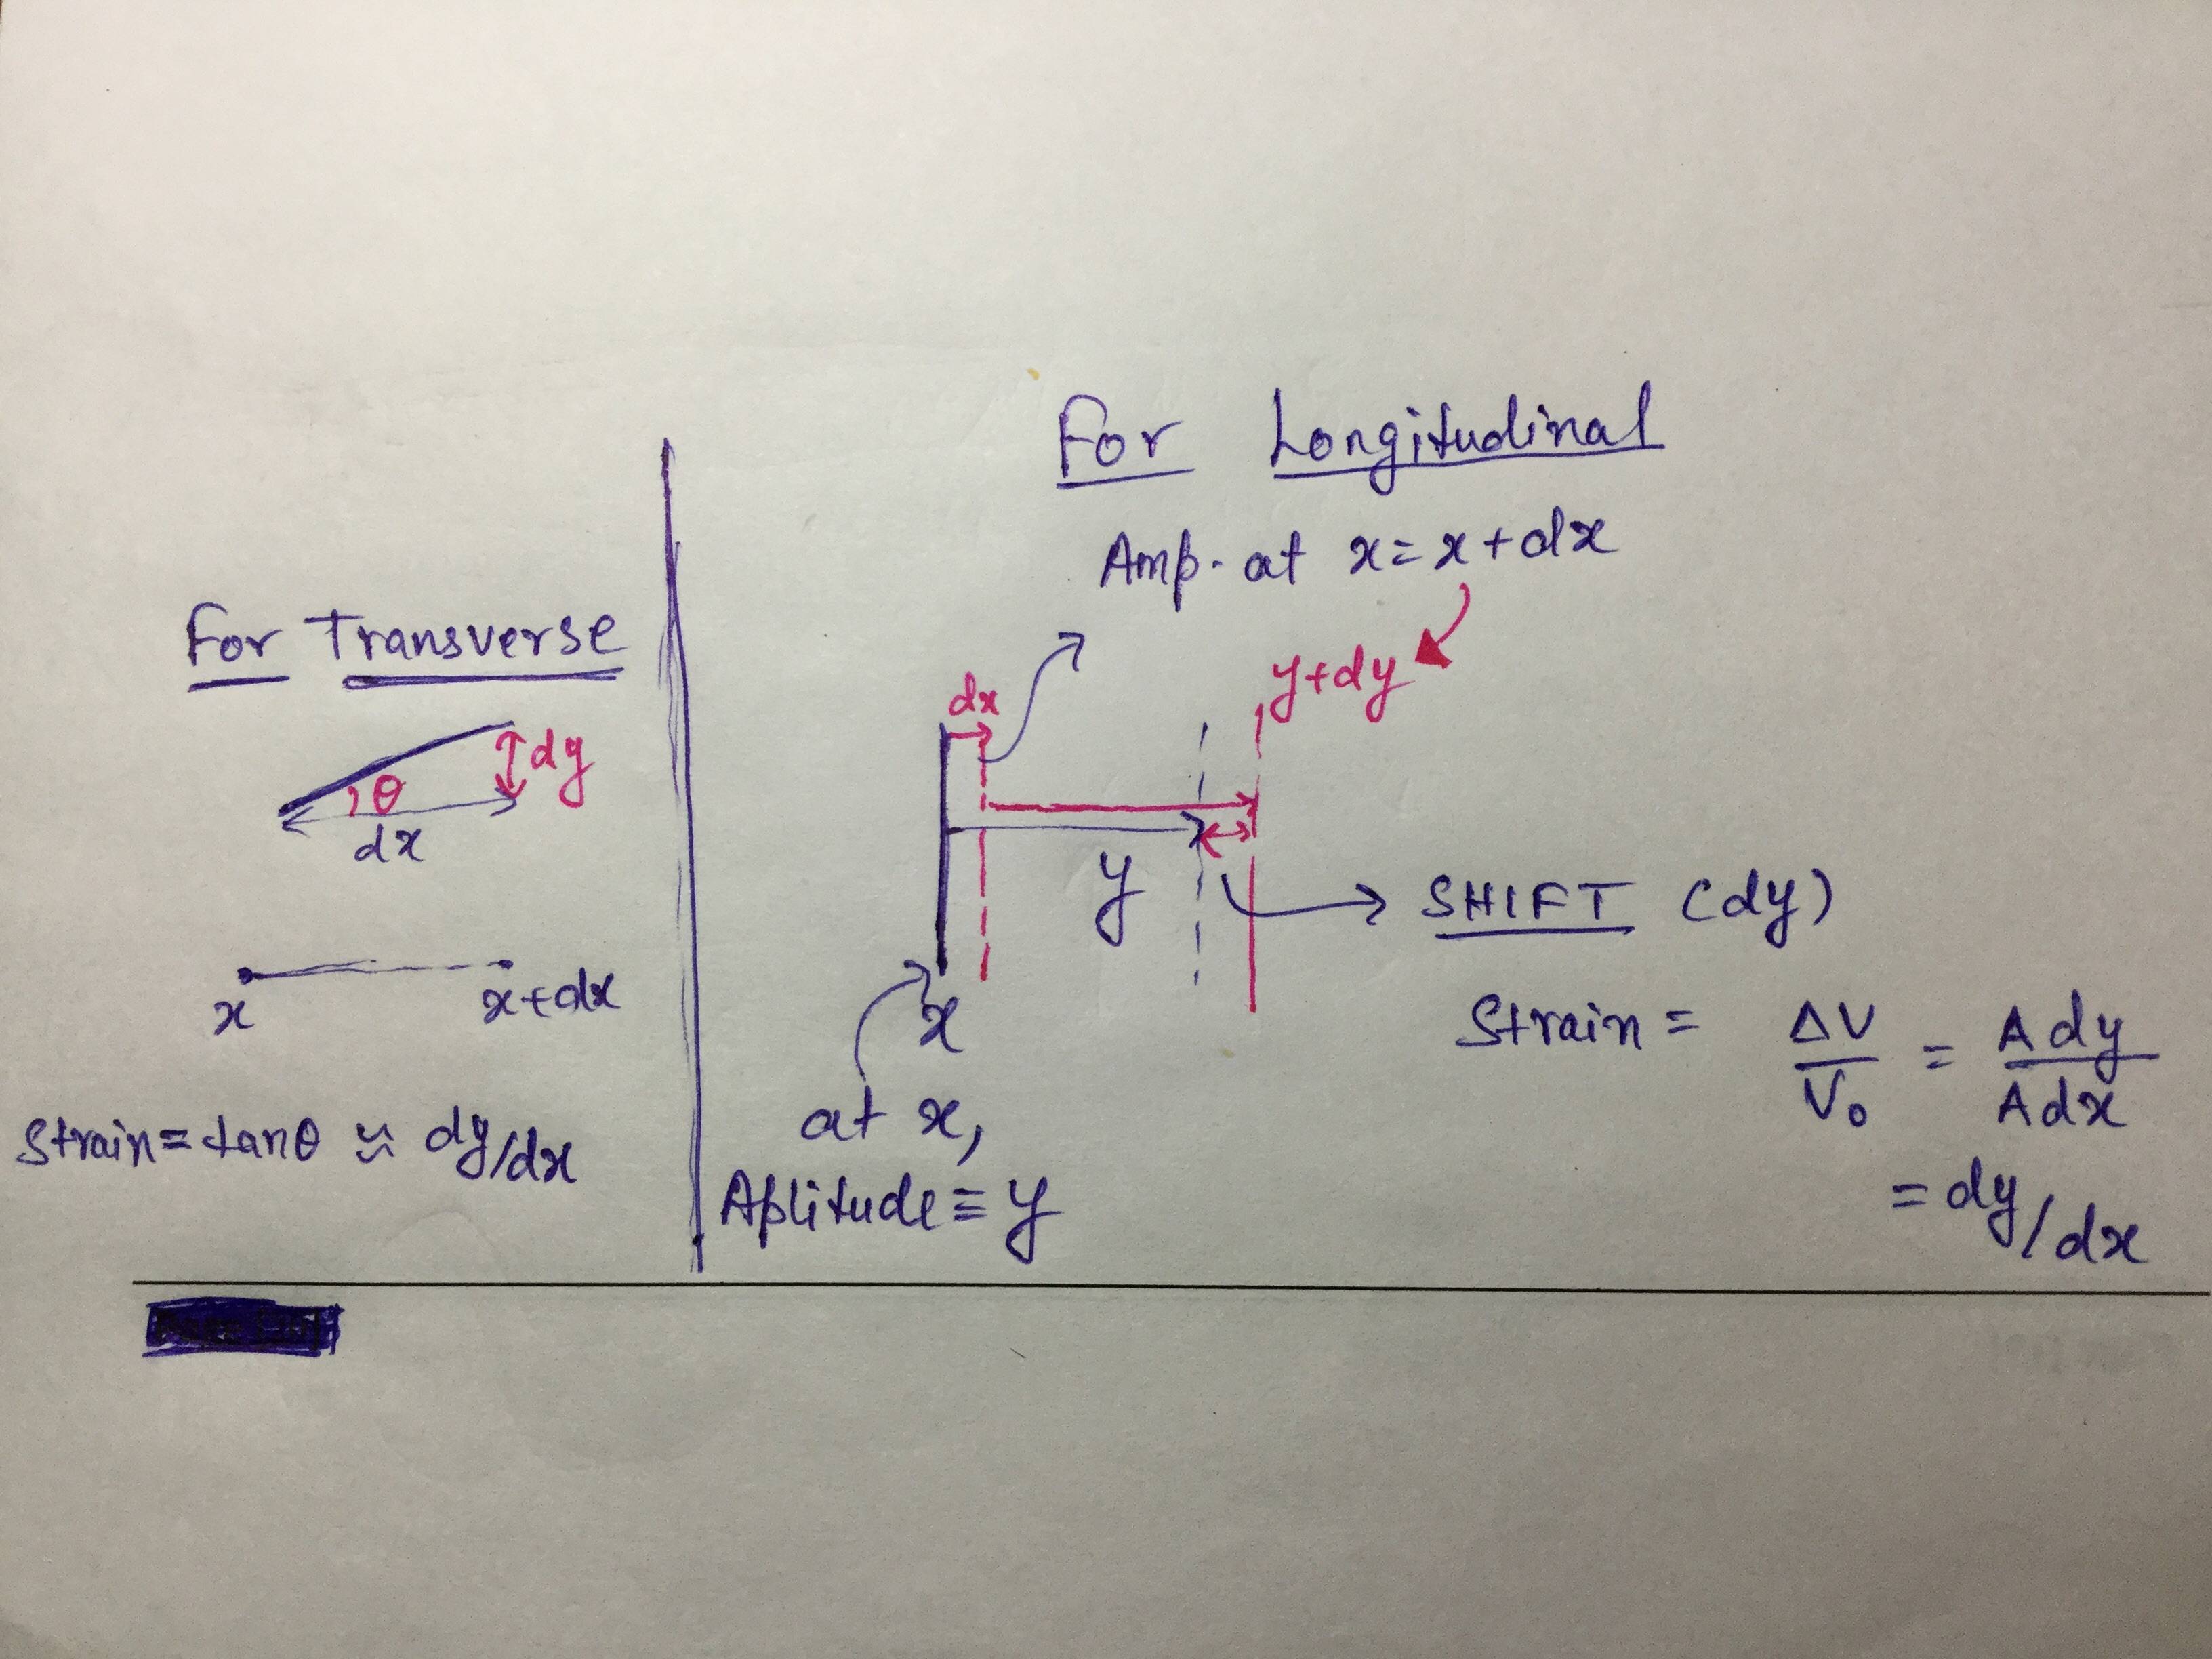 For Transverse
dy
θ
dx
x
x+dx
Strain = tanθ ≈ dy/dx
For Longitudinal
Amp. at x = x+dx
dx
y+dy
y
SHIFT (dy)
x
at x,
Aplitude ≡ y
Strain = ΔV/V₀ = A dy/A dx
= dy/dx